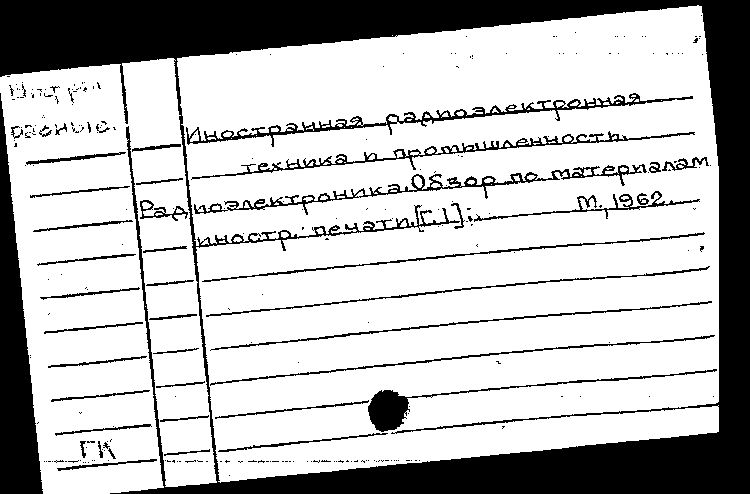 разные.
Иностранная радиоэлектронная
техника и промышленность.
Радиоэлектроника. Обзор по материалам
иностр. печати. [т. 1]. М., 1962.
ГК